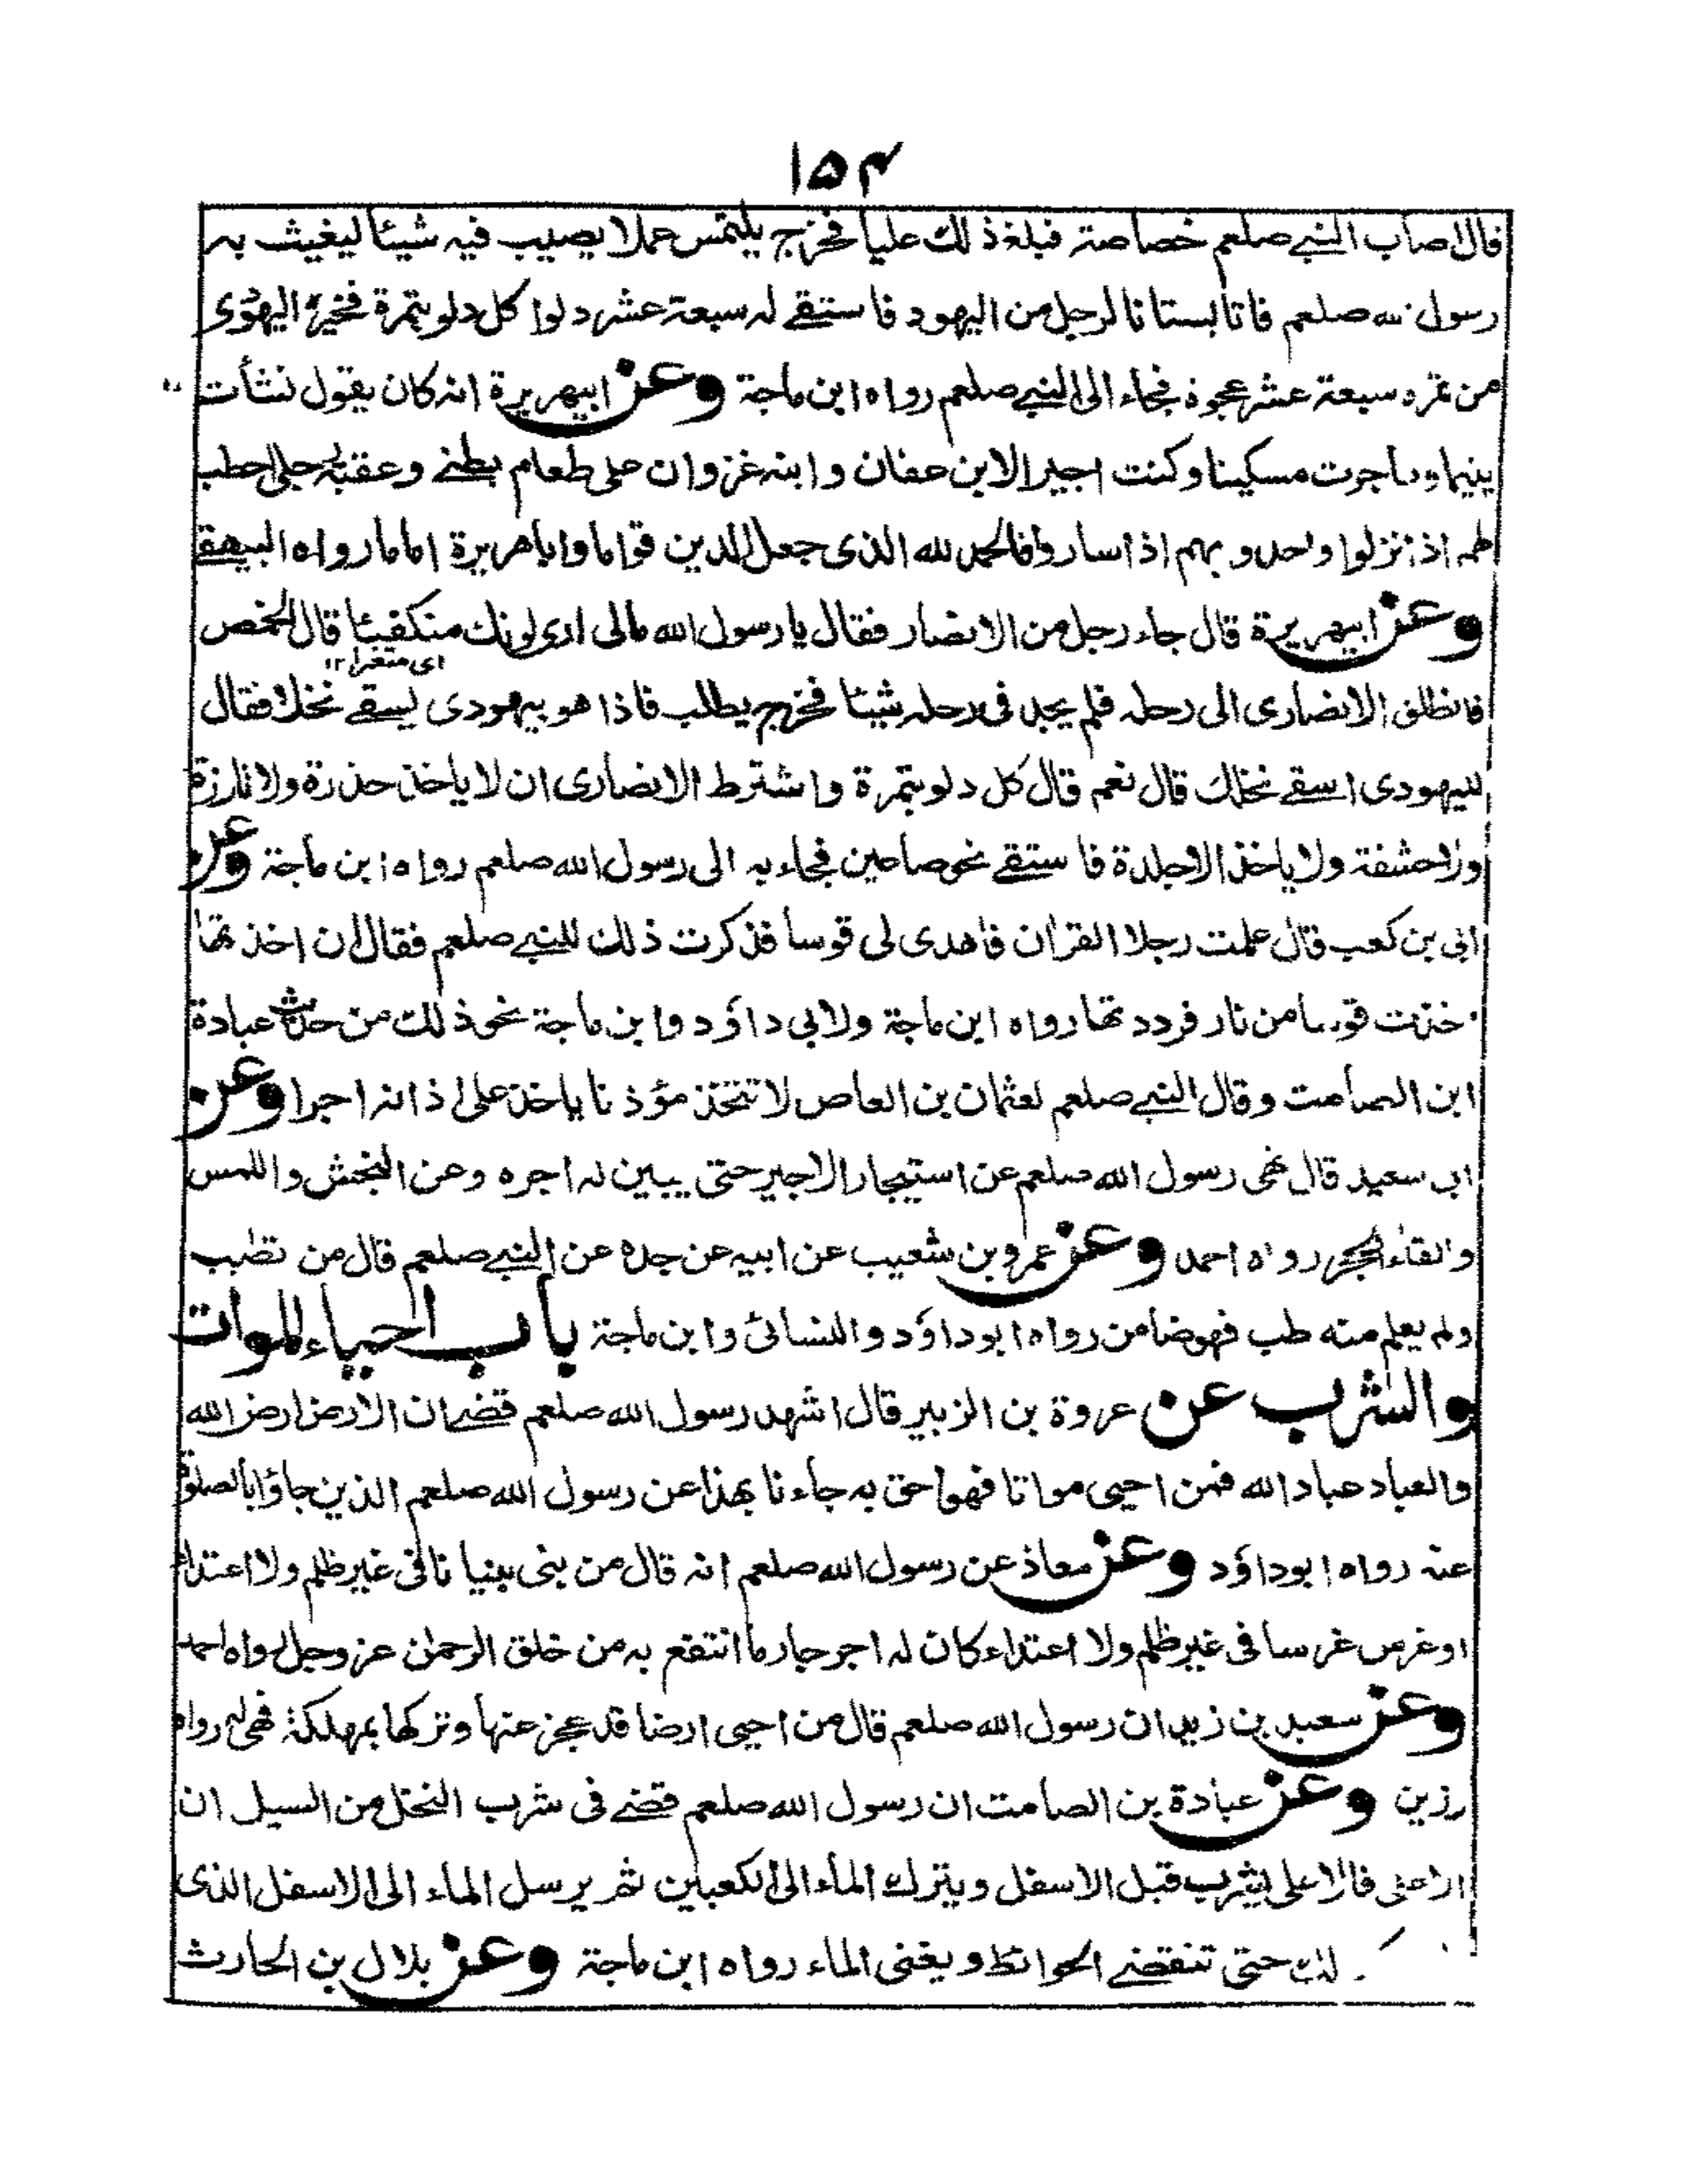 ۱۵۴
قال اصاب النبي صلعم خصاصة فبلغ ذلك عليا فخرج يلتمس عملا يصيب فيه شيئا ليغيث به
رسول الله صلعم فاتا بستانا لرجل من اليهود فاستقے له سبعة عشر دلوا كل دلو بتمرة فخيره اليهودى
من تمره سبعة عشر عجوة فجاء الى النبي صلعم رواه ابن ماجة وعن ابيهريرة انه كان يقول نشأت
يتيما وهاجرت مسكينا وكنت اجيرا لابن عفان وابنه غزوان على طعام بطنے وعقبة رجلى احطب
لهم اذا نزلوا واحدو بهم اذا ساروا فالحمد لله الذى جعل الدين قواما واباهريرة اماما رواه البيهقے
وعن ابيهريرة قال جاء رجل من الانصار فقال يا رسول الله مالى ارى لونك منكفيئا قال الخمص
اى متغيرا ۱۲
فانطلق الانصارى الى رحله فلم يجد فى رحله شيئا فخرج يطلب فاذا هو بيهودى يسقے نخلا فقال
لليهودى اسقے نخلك قال نعم قال كل دلو بتمرة واشترط الانصارى ان لا ياخذ حذرة ولا تارزة
ولا حشفة ولا ياخذ الا جلدة فاستقے نحو صاعين فجاء به الى رسول الله صلعم رواه ابن ماجة وعن
ابى بن كعب قال علمت رجلا القران فاهدى لى قوسا فذكرت ذلك للنبي صلعم فقال ان اخذتها
اخذت قوسا من نار فرددتها رواه ابن ماجة ولابى داؤد وابن ماجة نحو ذلك من حديث عبادة
ابن الصامت وقال النبي صلعم لعثمان بن العاص لا تتخذ مؤذنا ياخذ على اذانه اجرا وعن
ابى سعيد قال نهى رسول الله صلعم عن استيجار الاجير حتى يبين له اجره وعن النجش واللمس
والقاء الحجر رواه احمد وعن عمرو بن شعيب عن ابيه عن جده عن النبي صلعم قال من تطبب
ولم يعلم منه طب فهو ضامن رواه ابوداؤد والنسائى وابن ماجة باب احياء الموات
والشرب عن عروة بن الزبير قال اشهد رسول الله صلعم قضے ان الارض ارض الله
والعباد عباد الله فمن احيى مواتا فهو احق به جاءنا بهذا عن رسول الله صلعم الذين جاؤا بالصلوة
عنه رواه ابوداؤد وعن معاذ عن رسول الله صلعم انه قال من بنى بنيانا فى غير ظلم ولا اعتداء
او غرس غرسا فى غير ظلم ولا اعتداء كان له اجر جار ما انتفع به من خلق الرحمن عز وجل رواه احمد
وعن سعيد بن زيد ان رسول الله صلعم قال من احيى ارضا قد عجز عنها وتركها بمهلكة فهى له رواه
رزين وعن عبادة بن الصامت ان رسول الله صلعم قضے فى شرب النخل من السيل ان
الاعلى فالاعلى يشرب قبل الاسفل ويترك الماء الى الكعبين ثم يرسل الماء الى الاسفل الذى
حتى تنقضے الحوائط ويفنى الماء رواه ابن ماجة وعن بلال بن الحارث